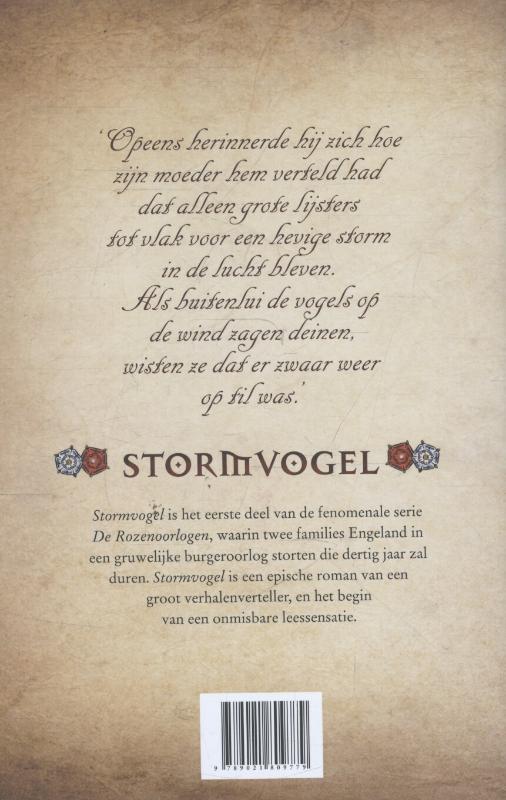 ‘Opeens herinnerde hij zich hoe
zijn moeder hem verteld had
dat alleen grote lijsters
tot vlak voor een hevige storm
in de lucht bleven.
Als buitenlui de vogels op
de wind zagen deinen,
wisten ze dat er zwaar weer
op til was.’
STORMVOGEL
Stormvogel is het eerste deel van de fenomenale serie
De Rozenoorlogen, waarin twee families Engeland in
een gruwelijke burgeroorlog storten die dertig jaar zal
duren. Stormvogel is een epische roman van een
groot verhalenverteller, en het begin
van een onmisbare leessensatie.
9 789021 809779